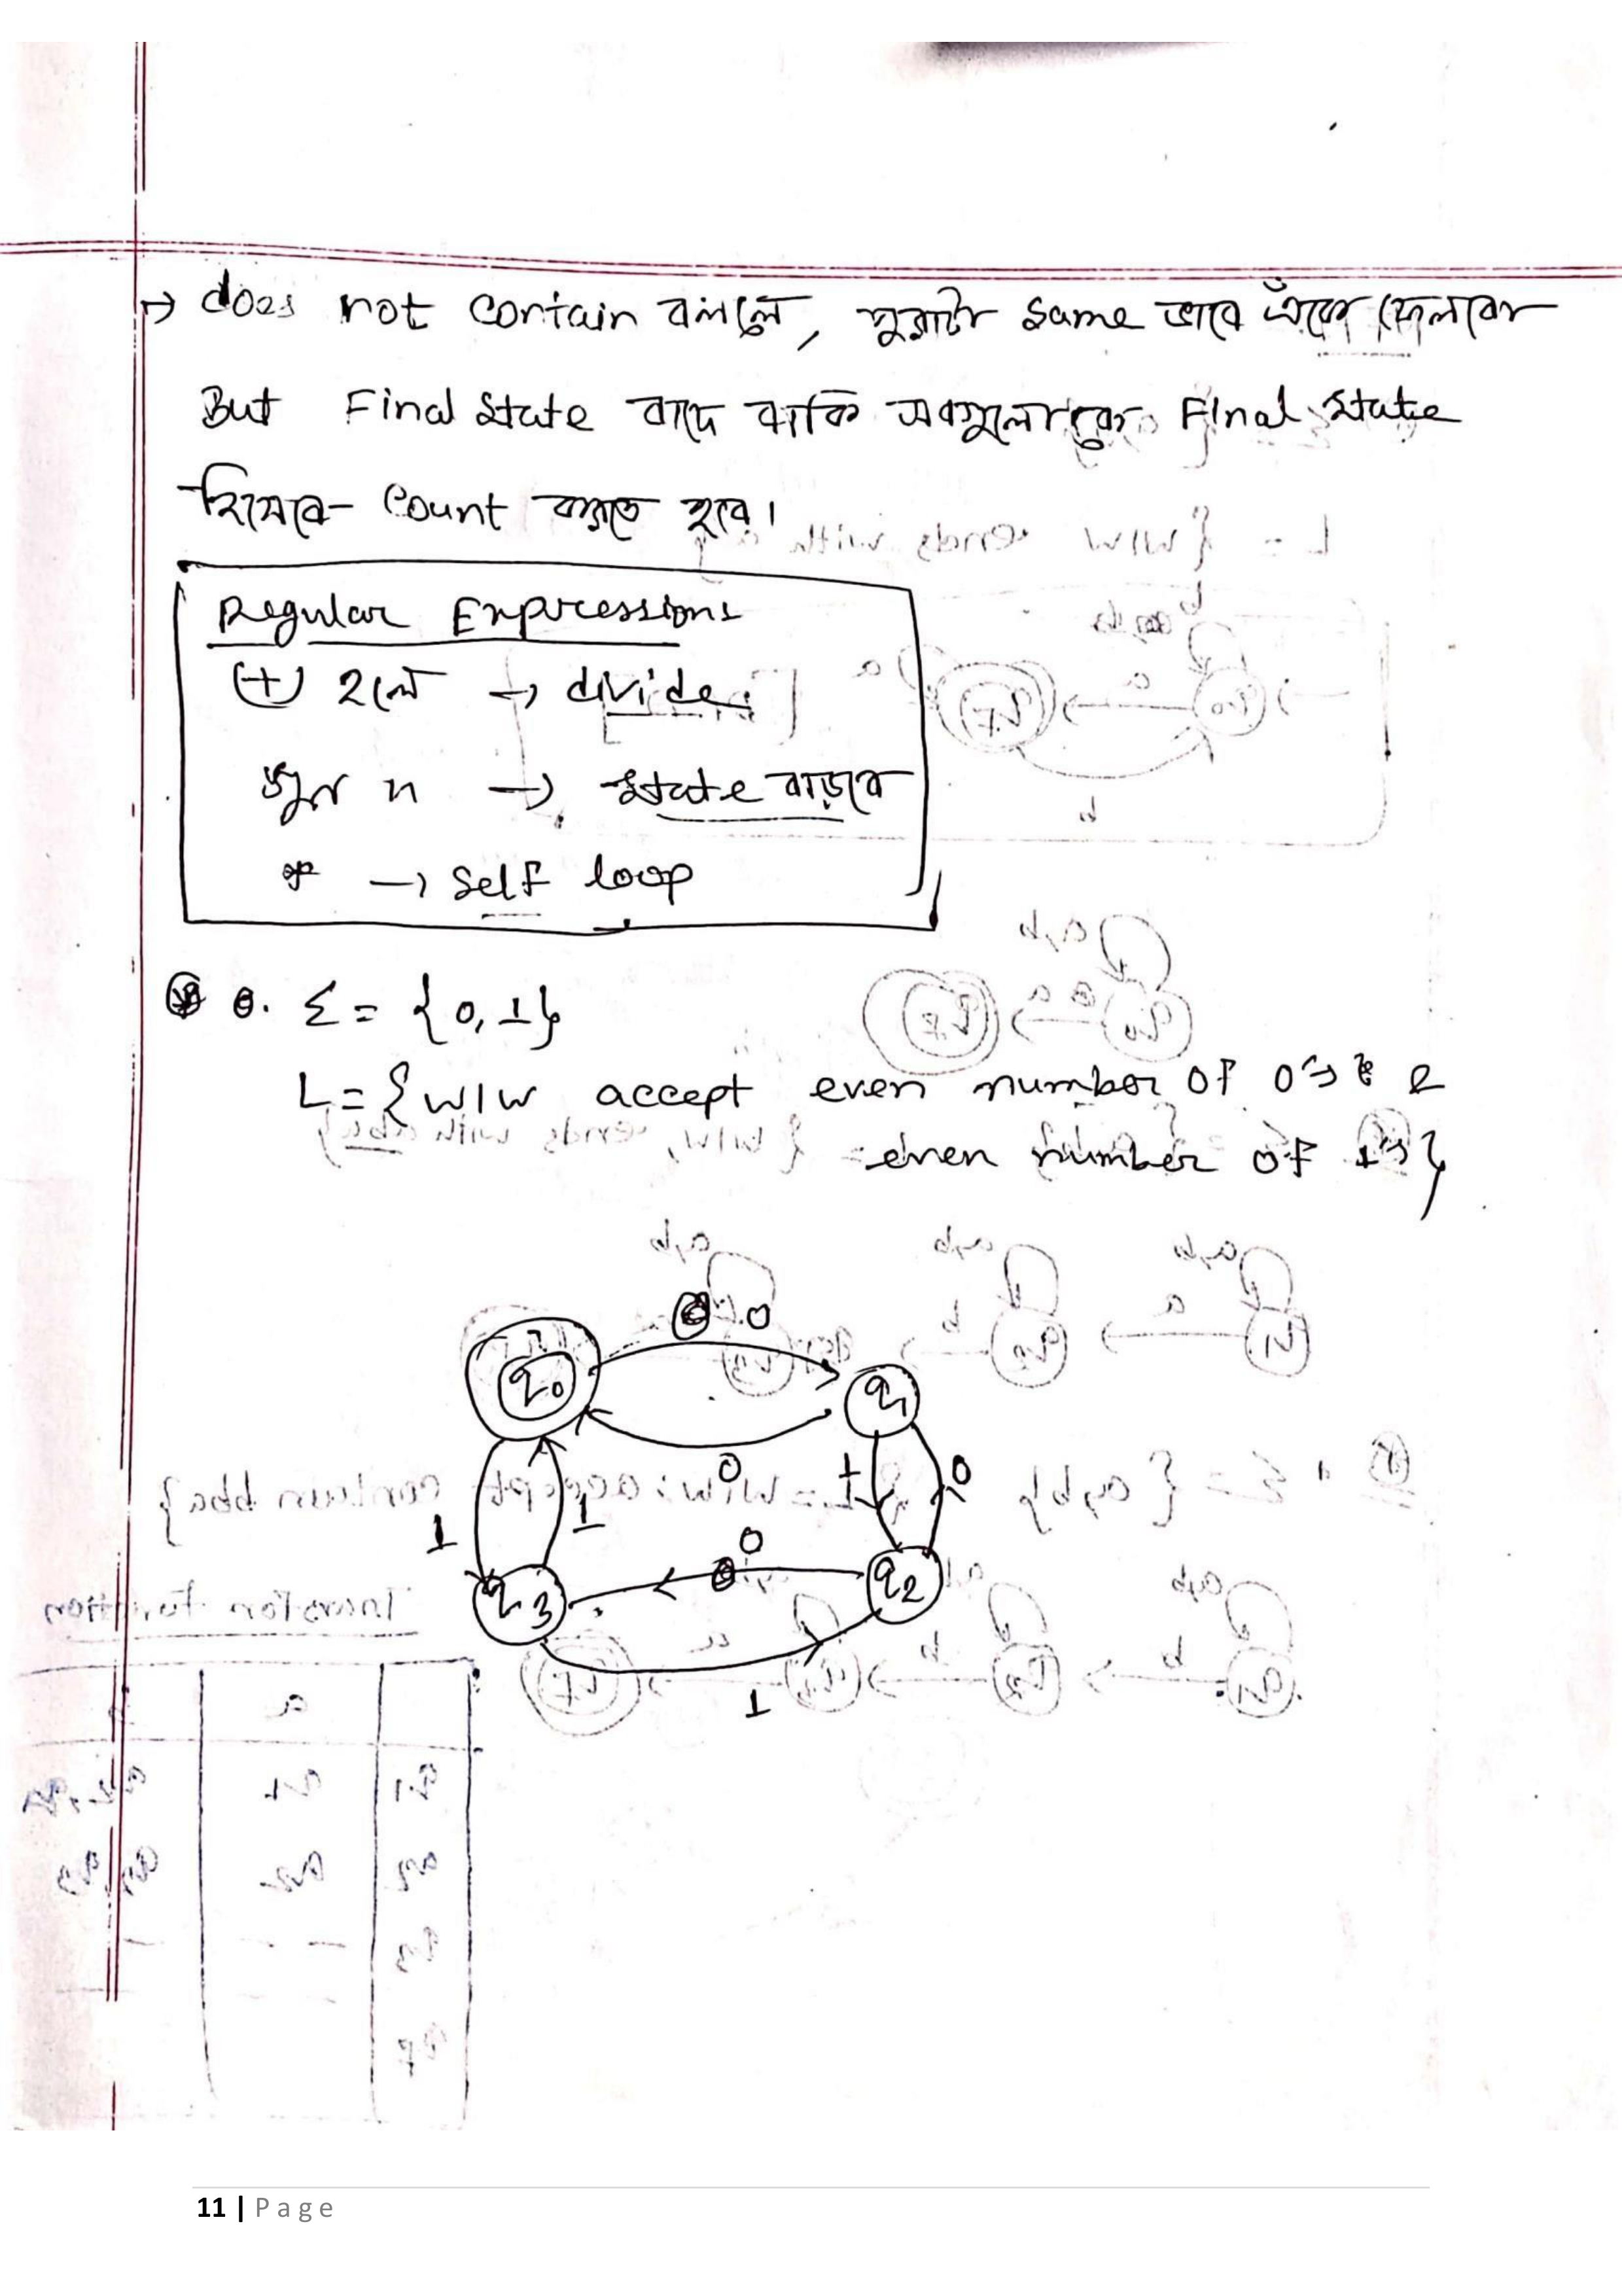 → does not contain বললে, পুরাটা same ভাবে এঁকে ফেলবো
But Final state বাদে বাকি সবগুলোকে Final state
হিসেবে count করতে হবে।
Regular Expressions
(+) হলে → divide
গুন n → state বাড়বে
* → self loop
Σ = {0, 1}
L = {w|w accept even number of 0's &
even number of 1's}
0
q0 q1
0
1 0
1 1
0
q3 q2
1
11 | Page